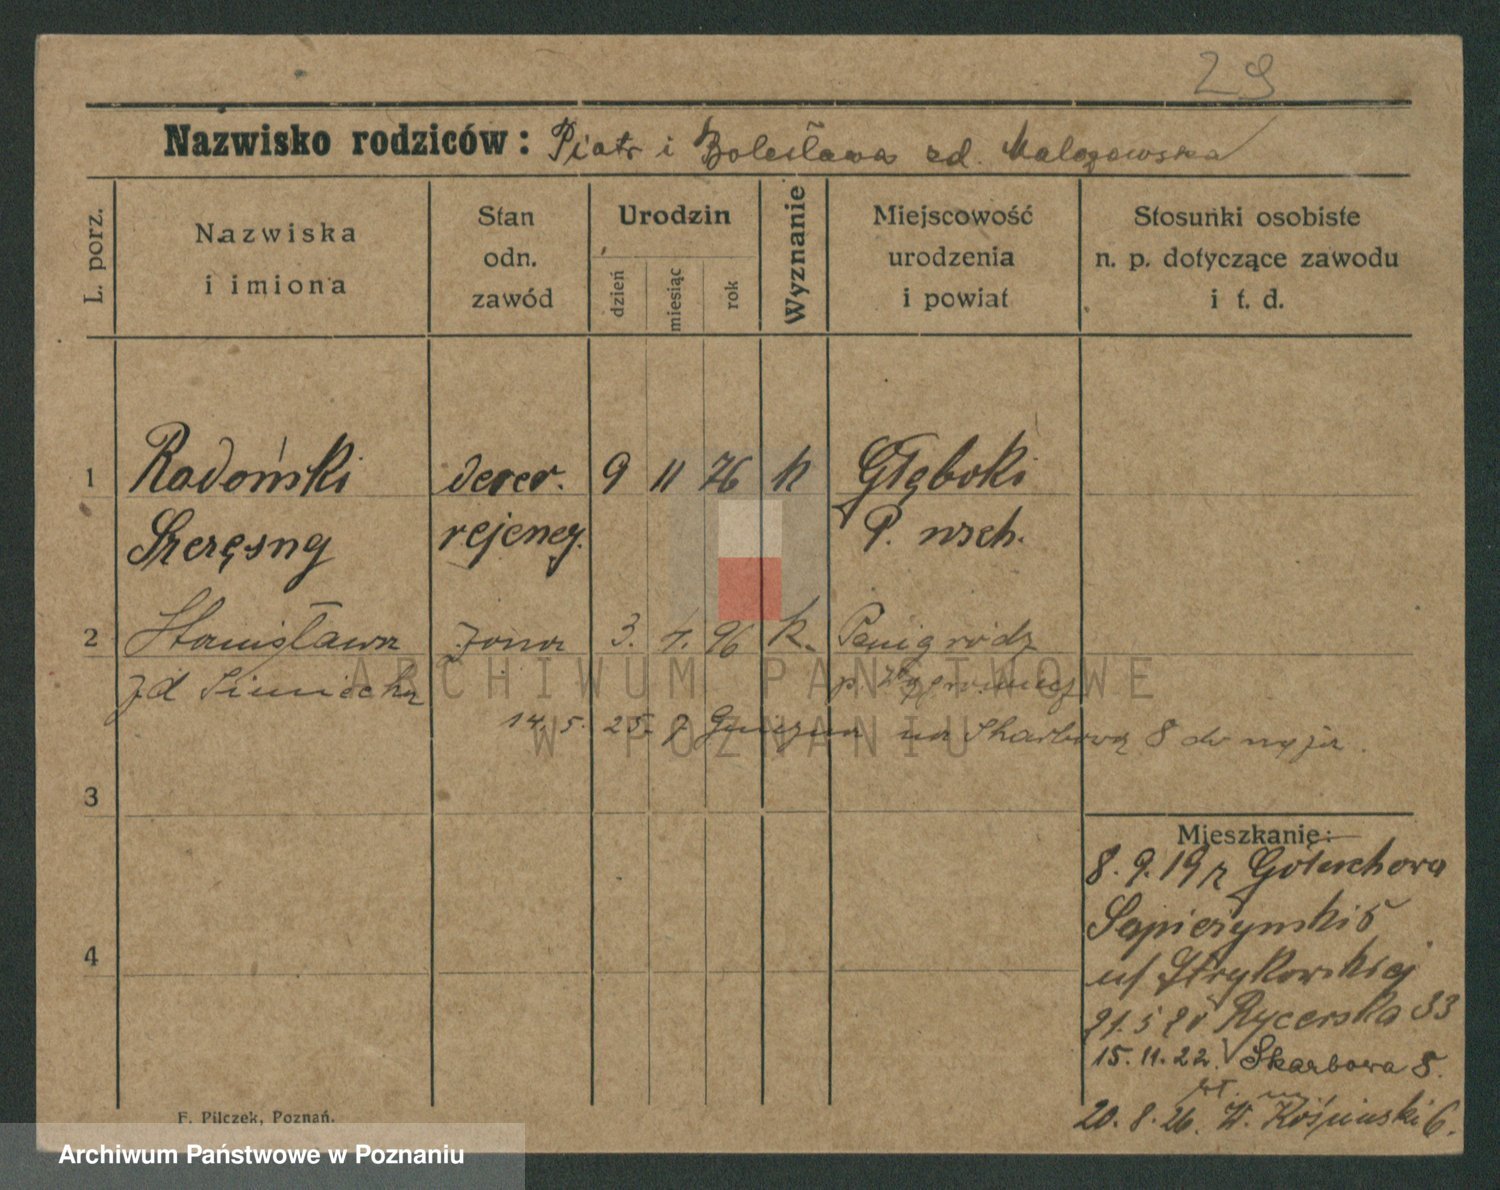 29
Nazwisko rodziców: Piotr i Bolesława zd. Małczewska
L. porz.
Nazwiska
i imiona
Stan
odn.
zawód
Urodzin
dzień
miesiąc
rok
Wyznanie
Miejscowość
urodzenia
i powiat
Stosunki osobiste
n. p. dotyczące zawodu
i t. d.
1 Radoński decer. 9 11 76 k Głęboki
Szczęsny rejency. P. wsch.
2 Stanisława żona 3. 4. 96 k. Panigródz
zd Simiecka p.
14. 5. 25. z Gniezna na Skarbową 8 do męża.
3
4
Mieszkanie:
8. 9. 19 r Gołuchowa
Sapieżyński 5
u/ Strykowskiej
21. 5 20 Rycerska 33
15. 11. 22. Skarbowa 8.
20. 8. 26. W. 6.
F. Pilczek, Poznań.
ARCHIWUM PAŃSTWOWE
W POZNANIU
Archiwum Państwowe w Poznaniu